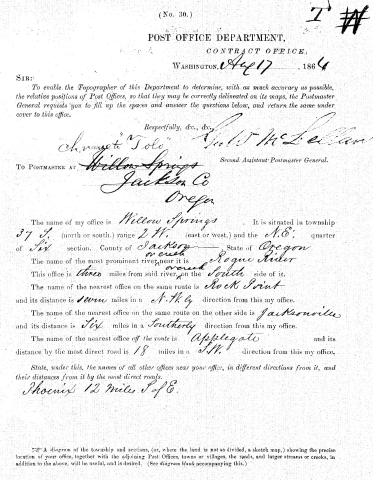 (No. 30.)
T
POST OFFICE DEPARTMENT,
CONTRACT OFFICE,
WASHINGTON, Aug 17 1864
SIR:
To enable the Topographer of this Department to determine, with as much accuracy as possible,
the relative positions of Post Offices, so that they may be correctly delineated on its maps, the Postmaster
General requests you to fill up the spaces and answer the questions below, and return the same under
cover to this office.
Respectfully, &c., &c.,
Geo. W. McLellan
Second Assistant Postmaster General.
Change to "Tolo"
TO POSTMASTER AT Willow Springs
Jackson Co
Oregon
The name of my office is Willow Springs. It is situated in township
37 S. (north or south) range 2 W. (east or west,) and the N.E. quarter
of Six section. County of Jackson, State of Oregon
or creek
The name of the most prominent river near it is Rogue River
or creek
This office is three miles from said river, on the South side of it.
The name of the nearest office on the same route is Rock Point
and its distance is seven miles in a N.Wly direction from this my office.
The name of the nearest office on the same route on the other side is Jacksonville
and its distance is Six miles in a Southerly direction from this my office.
The name of the nearest office off the route is Applegate and its
distance by the most direct road is 18 miles in a S.W. direction from this my office.
State, under this, the names of all other offices near your office, in different directions from it, and
their distances from it by the most direct roads.
Phoenix 12 Miles S of E.
A diagram of the township and sections, (or, when the land is not so divided, a sketch map,) showing the precise
location of your office, together with the adjoining Post Offices, towns or villages, the roads, and larger streams or creeks, in
addition to the above, will be useful, and is desired. (See diagram blank accompanying this.)